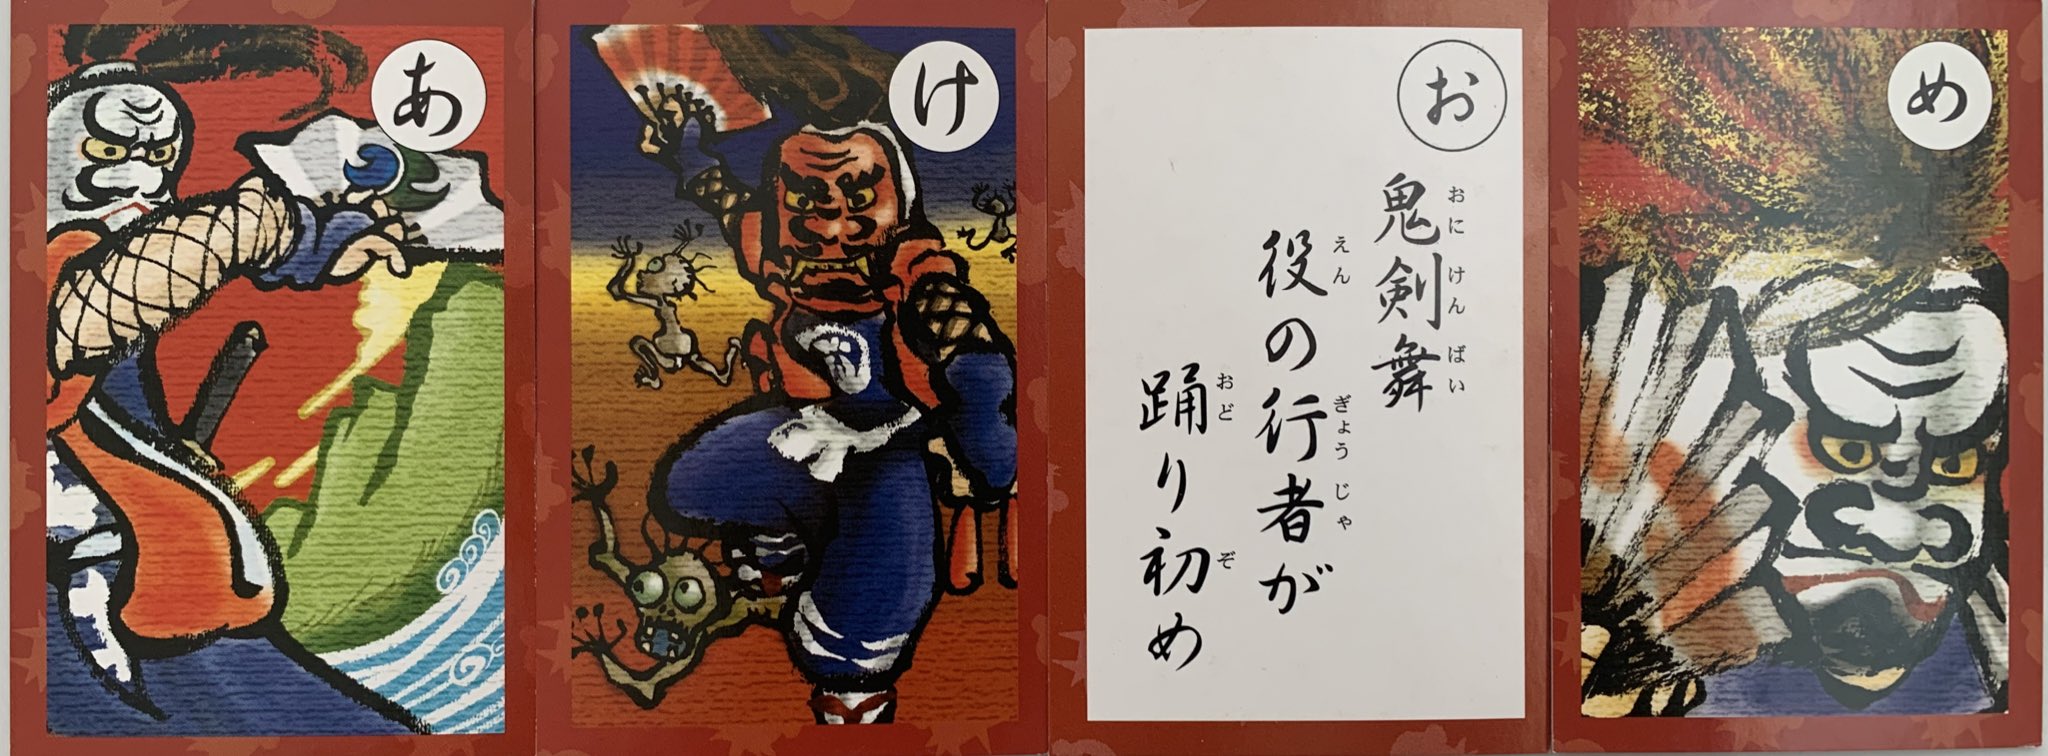 あ
け
お
鬼剣舞
おにけんばい
役の行者が
えんぎょうじゃ
踊り初め
おどぞ
め